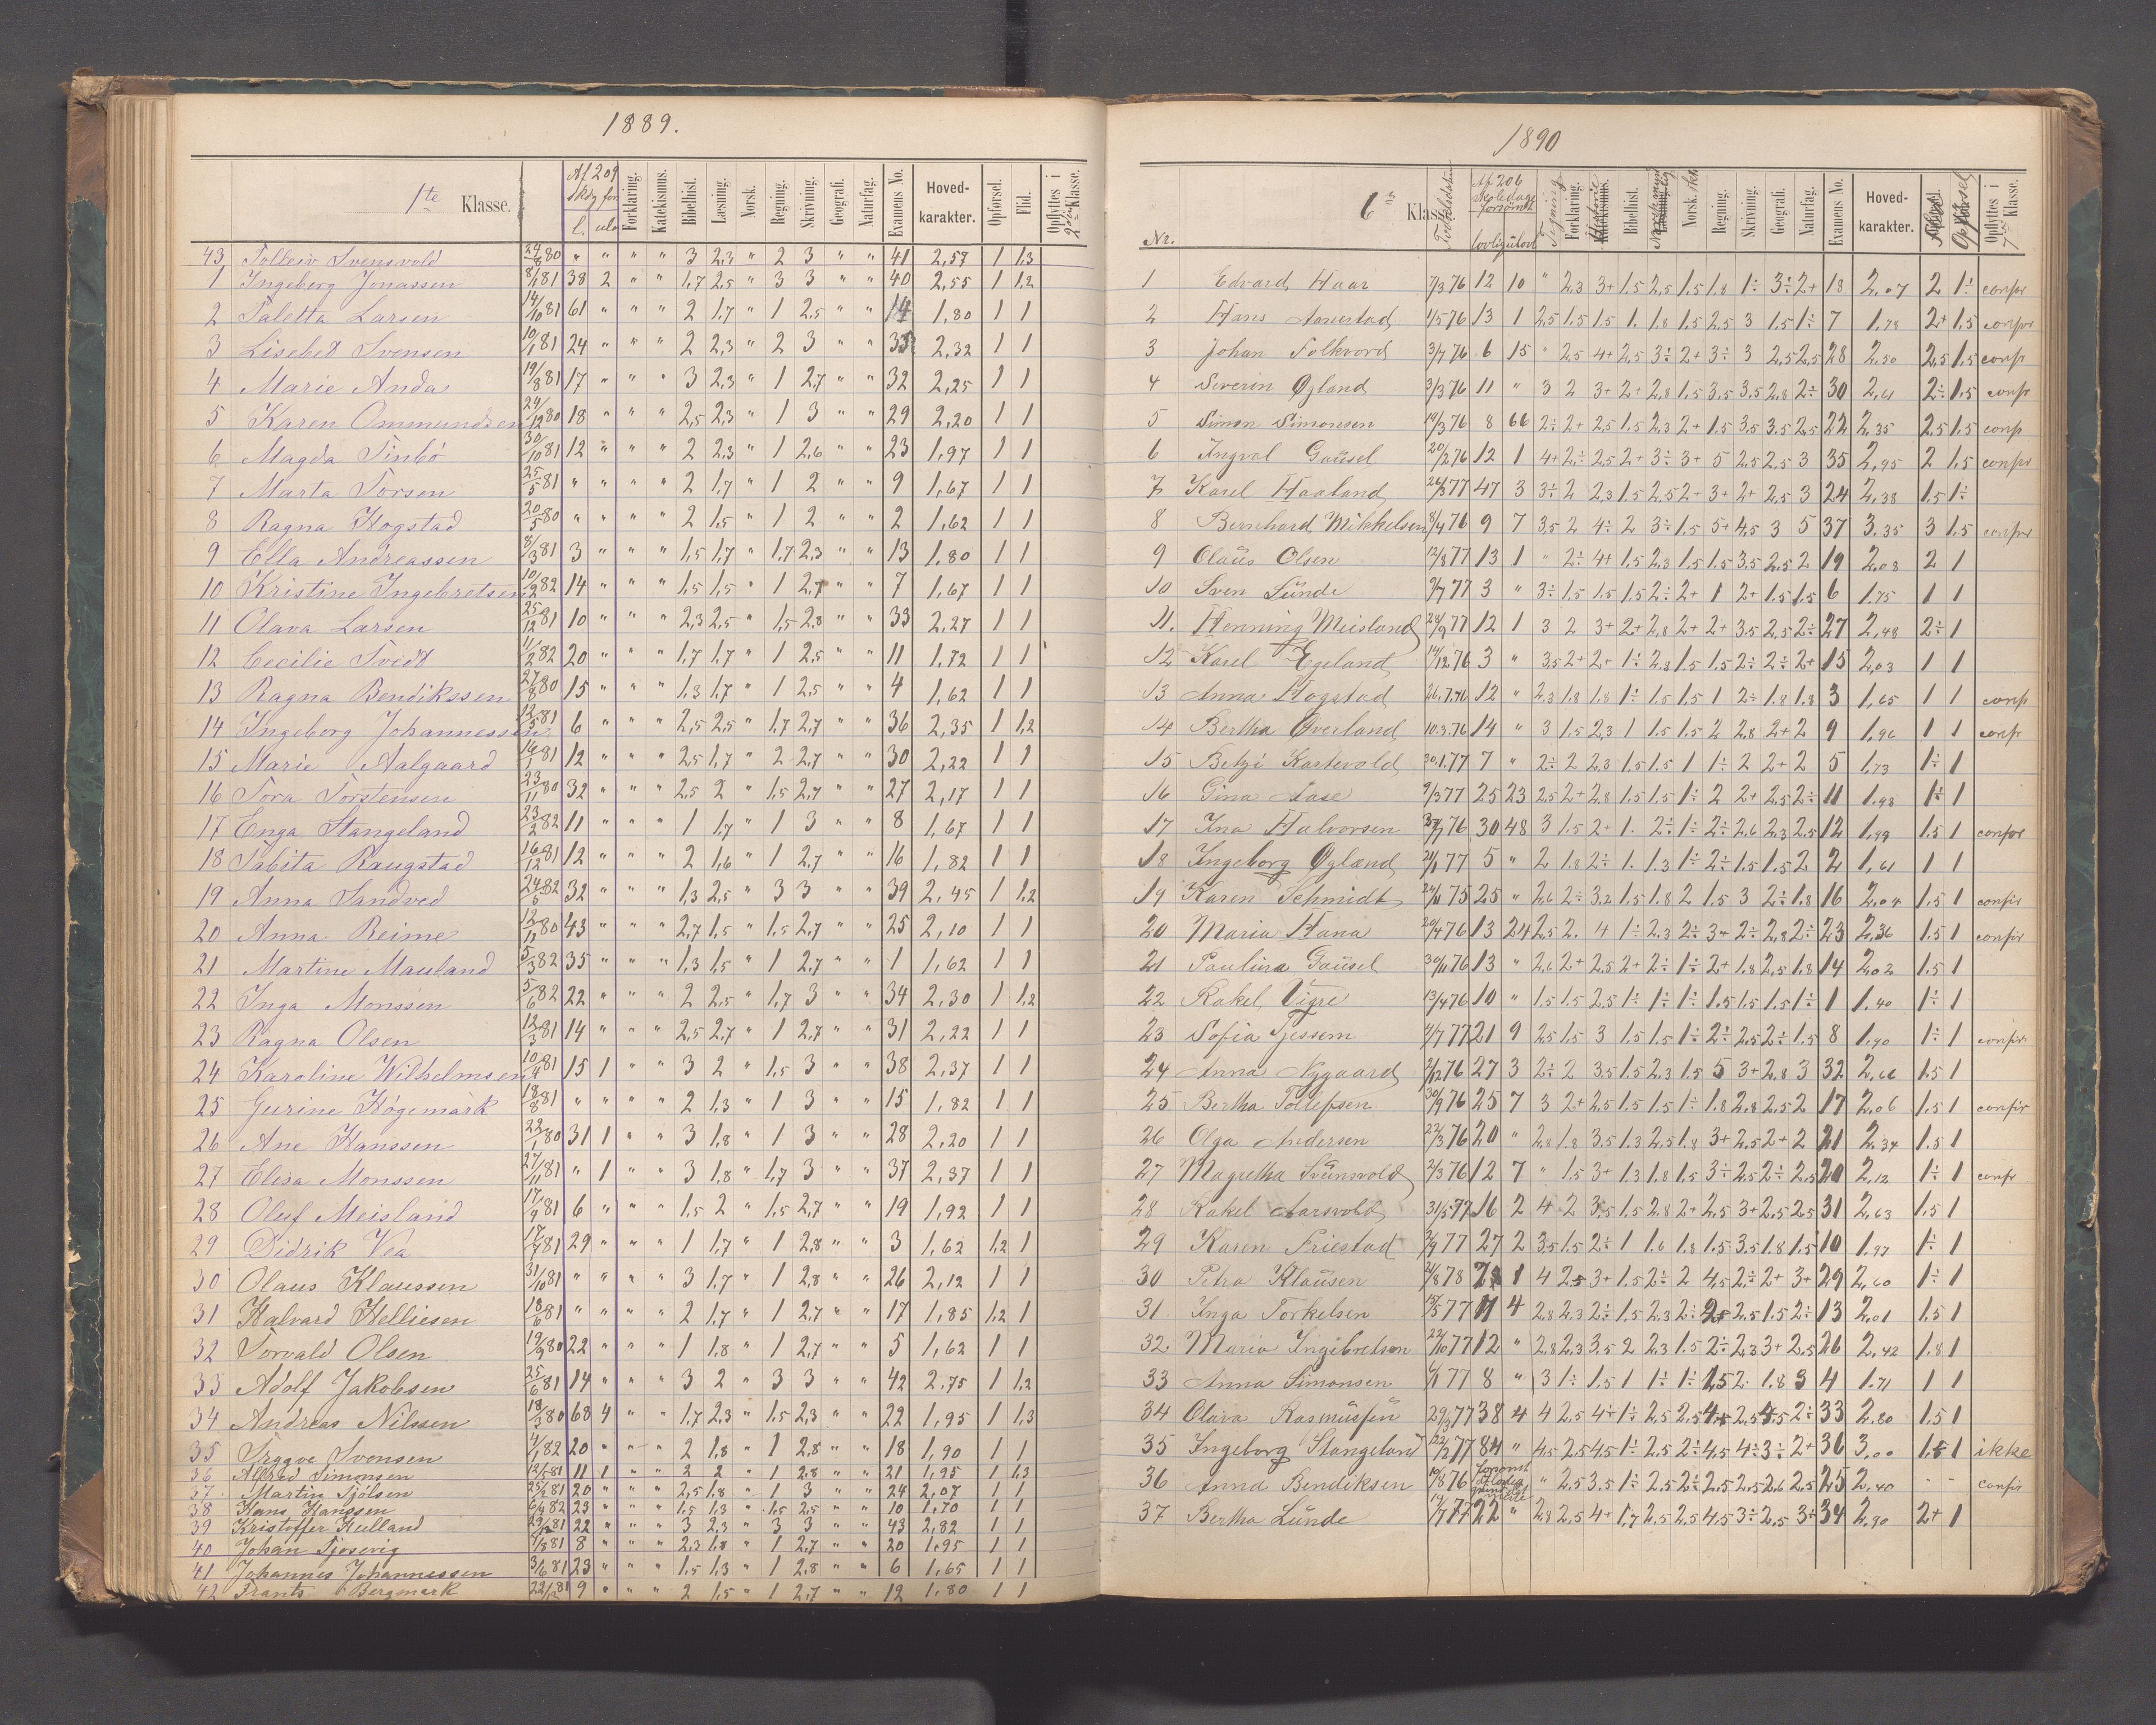 1889.
1te Klasse.
Af 209
Forklaring. Katekismus. Bibelhist. Læsning. Norsk. Regning. Skrivning. Geografi. Naturfag. Examens No. Hoved-karakter. Opførsel. Flid. Opflyttes i 2den Klasse.
43 Tolleiv Svensvold 24/8 80 " " " " 3 2,3 " 2 3 " " 41 2,57 1 1,3
1 Ingeborg Jonassen 8/1 81 38 2 " " 1,7 2,5 " 3 3 " " 40 2,55 1 1,2
2 Taletta Larsen 14/10 81 61 " " " 2 1,7 " 1 2,5 " " 14 1,80 1 1
3 Lisebet Svensen 10/1 81 24 " " " 2 2,3 " 2 3 " " 35 2,32 1 1
4 Marie Anda 19/8 81 17 " " " 3 2,3 " 1 2,7 " " 32 2,25 1 1
5 Karen Ommundsen 24/12 80 18 " " " 2,5 2,3 " 1 3 " " 29 2,20 1 1
6 Magda Tinbø 30/10 81 12 " " " 2 2,3 " 1 2,6 " " 23 1,97 1 1
7 Marta Torsen 25/5 81 " " " " 2 1,7 " 1 2 " " 9 1,67 1 1
8 Ragna Hogstad 20/5 80 " " " " 2 1,5 " 1 2 " " 2 1,62 1 1
9 Ella Andreassen 8/3 81 3 " " " 1,5 1,7 " 1,7 2,3 " " 13 1,80 1 1
10 Kristine Ingebretsen 10/2 82 14 " " " 1,5 1,5 " 1 2,7 " " 7 1,67 1 1
11 Olava Larsen 25/12 81 10 " " " 2,3 2,5 " 1,5 2,8 " " 33 2,27 1 1
12 Cecilie Tvedt 11/2 82 20 " " " 1,7 1,7 " 1 2,5 " " 11 1,72 1 1
13 Ragna Bendikssen 27/8 80 15 " " " 1,3 1,7 " 1 2,5 " " 4 1,62 1 1
14 Ingeborg Johannessen 12/5 81 6 " " " 2,5 2,5 " 1,7 2,7 " " 36 2,35 1 1,2
15 Marie Aalgaard 16/1 81 12 " " " 2,5 1,7 " 2 2,7 " " 30 2,22 1 1
16 Tora Torstensen 23/11 80 32 " " " 2,5 2 " 1,5 2,7 " " 27 2,17 1 1
17 Enga Stangeland 23/2 82 11 " " " 1 1,7 " 1 3 " " 8 1,67 1 1
18 Tabita Raugstad 16/12 81 12 " " " 2 1,6 " 1 2,7 " " 16 1,82 1 1
19 Anna Sandved 24/6 82 32 " " " 1,3 2,5 " 3 3 " " 39 2,45 1 1,2
20 Anna Reime 12/11 80 43 " " " 2,7 1,5 " 1,5 2,7 " " 25 2,10 1 1
21 Martine Mauland 5/3 82 35 " " " 1,3 1,5 " 1 2,7 " " 1 1,62 1 1
22 Inga Monssen 5/6 82 22 " " " 2 2,5 " 1,7 3 " " 34 2,30 1 1,2
23 Ragna Olsen 12/3 81 14 " " " 2,5 2,7 " 1 2,7 " " 31 2,22 1 1
24 Karoline Wilhelmsen 10/4 81 15 1 " " 3 2 " 1,5 3 " " 38 2,37 1 1
25 Gurine Høgemark 18/8 81 " " " " 2 1,3 " 1 3 " " 15 1,82 1 1
26 Ane Hanssen 22/1 80 31 1 " " 3 1,8 " 1 3 " " 28 2,20 1 1
27 Elisa Monssen 27/11 81 " 1 " " 3 1,8 " 1,7 3 " " 37 2,37 1 1
28 Oluf Meisland 17/9 81 6 " " " 1,5 2 " 1,5 2,7 " " 19 1,92 1 1
29 Didrik Vea 17/4 81 29 " " " 1 1,7 " 1 2,8 " " 3 1,62 1,2 1
30 Olaus Klaussen 31/10 81 " " " " 3 1,7 " 1 2,8 " " 26 2,12 1 1
31 Halvard Helliesen 18/6 81 " " " " 2 1,7 " 1 2,7 " " 17 1,85 1,2 1
32 Torvald Olsen 19/9 80 22 " " " 1 1,8 " 1 2,7 " " 5 1,62 1 1
33 Adolf Jakobsen 25/6 81 14 " " " 3 2 " 3 3 " " 42 2,75 1 1,2
34 Andreas Nilssen 18/3 80 68 4 " " 1,7 2,3 " 1,5 2,3 " " 22 1,95 1 1,3
35 Trygve Svensen 4/1 82 20 " " " 2 1,8 " 1 2,8 " " 18 1,90 1 1
36 Alfred Simonsen 12/5 81 11 1 " " 2 2 " 1 2,8 " " 21 1,95 1 1,3
37 Martin Tjølsen 25/6 81 20 " " " 2,5 1,8 " 1 3 " " 24 2,07 1 1
38 Hans Hanssen 6/4 82 23 " " " 1,5 1,3 " 1,5 2,5 " " 10 1,70 1 1
39 Kristoffer Hulland 29/12 81 22 " " " 3 2,3 " 3 3 " " 43 2,82 1 1
40 Johan Tjosevig 7/8 81 8 " " " 2,3 1,8 " 1 2,7 " " 20 1,95 1 1
41 Johannes Johannessen 3/6 81 23 " " " 1,5 1,3 " 1 2,8 " " 6 1,65 1 1
42 Frants Bergmark 22/12 81 9 " " " 2 1,5 " 1 2,7 " " 12 1,80 1 1
1890
6te Klasse
Nr. Fødselsdatum Af 206 Skoledage forsømt lovlig ulovl Tegning Forklaring. Historie Katekismus. Bibelhist. Norsk skr. Regning. Skrivning. Geografi. Naturfag. Examens No. Hoved-karakter. Opførsel Opflyttes i 7de Klasse.
1 Edvard Haar 7/3 76 12 10 " 2,3 3+ 1,5 2,5 1,5 1,8 1÷ 3÷ 2+ 18 2,07 2 1÷ confir
2 Hans Aanestad 4/5 76 13 1 2,5 1,5 1,5 1. 1,8 1,5 2,5 3 1,5 1÷ 7 1,78 2+ 1,5 confir
3 Johan Folkvord 3/7 76 6 15 " 2,5 4+ 2,5 3÷ 2+ 3÷ 3 2,5 2,5 28 2,50 2,5 1,5 conf
4 Severin Øgland 3/3 76 11 " 3 2 3+ 2+ 2,8 1,5 3,5 3,5 2,8 2÷ 30 2,61 2÷ 1,5 conf
5 Simon Simonsen 19/3 76 8 66 2÷ 2+ 2,5 1,5 2,3 2+ 1,5 3,5 3,5 2,5 22 2,35 2,5 1,5 conf
6 Ingval Gausel 20/2 76 12 1 4+ 2÷ 2,5 2+ 3÷ 3+ 5 2,5 2,5 3 35 2,95 2 1,5 confir
7 Karel Haaland 26/3 77 47 3 3÷ 2 2,3 1,5 2,5 2÷ 3+ 2+ 2,5 3 24 2,38 1,5 1÷
8 Bernhard Mikkelsen 8/4 76 9 7 3,5 2 4÷ 2 3÷ 1,5 5+ 4,5 3 5 37 3,35 3 1,5 confir
9 Olaus Olsen 12/8 77 13 1 " 2÷ 4+ 1,5 2,3 1,5 1,5 3,5 2,5 2 19 2,08 2 1
10 Sven Lunde 9/7 77 3 " 3÷ 1,5 1,5 1,5 2÷ 2+ 1 2+ 1,5 1,5 6 1,75 1 1
11. Henning Meisland 28/9 77 12 1 3 2 3+ 2+ 2,8 2+ 2+ 3,5 2,5 2÷ 27 2,48 2÷ 1
12 Karel Egeland 14/12 76 3 " 3,5 2+ 2+ 1÷ 2,3 1,5 1,5 2÷ 2÷ 2+ 15 2,03 1 1
13 Anna Hogstad 26.7.76 12 " 2,3 1,8 1,8 1÷ 1,5 1,5 1 2÷ 1,8 1,8 3 1,65 1 1 conf
14 Bertha Øverland 10.3.76 14 " 3 1,5 2,3 1 1,5 1,5 2 2,8 2+ 2 9 1,96 1 1 conf
15 Betzi Kartevold 30.1.77 7 " 2÷ 2 2,3 1,5 1,5 1 1÷ 2 2+ 2 5 1,73 1÷ 1
16 Gina Aase 9/3 77 25 23 2,5 2+ 2,8 1,5 1,5 1÷ 2 2+ 2,5 2÷ 11 1,98 1÷ 1
17 Ina Halvorsen 76 30 48 3 1,5 2+ 1. 2÷ 1÷ 2÷ 2,6 2,3 2,5 12 1,99 1,5 1 confir
18 Ingeborg Øgland 77 5 " 2 1,8 2÷ 1. 1,3 1÷ 2÷ 1,5 1,5 2 2 1,61 1 1
19 Karen Schmidt 75 25 " 2,6 2÷ 3,2 1,5 1,8 2 1,5 3 2÷ 1,8 16 2,04 1,5 1 confir
20 Maria Hana 20/4 76 13 24 2,5 2. 4 1÷ 2,3 2÷ 3+ 2÷ 2,8 2÷ 23 2,36 1,5 1 confir
21 Paulina Gausel 30/11 76 13 " 2,6 2+ 2,5 2+ 2÷ 1÷ 2+ 1,8 2,5 1,8 14 2,02 1,5 1
22 Rakel Vigre 13/4 76 10 " 1,5 1,5 2,5 1÷ 1÷ 1÷ 1,5 1,5 1,5 1÷ 1 1,40 1÷ 1
23 Sofia Tjessem 4/7 77 21 9 2,5 1,5 3 1,5 1,5 1÷ 2÷ 2,5 2÷ 1,5 8 1,90 1÷ 1 confir
24 Anna Nygaard 2/12 76 27 3 2÷ 2 3,5 1,5 2,3 1,5 5 3+ 2,8 3 32 2,66 1,5 1
25 Bertha Tollefsen 30/9 76 25 7 3 2+ 2,5 1,5 1,5 1÷ 1,8 2,8 2,5 2 17 2,06 1,5 1 confir
26 Olga Andersen 22/3 76 20 " 2,8 1,8 3,5 1,3 2,5 1,8 3+ 2,5 2+ 2 21 2,34 1,5 1
27 Magretha Svensvold 2/3 76 12 7 " 1,5 3+ 1,3 1,8 1,5 3÷ 2,5 2÷ 2,5 20 2,12 1÷ 1 confir
28 Rakel Aarsvold 31/5 77 16 2 4 2 3,5 1,5 2,8 2+ 2,5 3+ 2,5 2,5 31 2,63 1,5 1
29 Karen Friestad 2/9 77 27 2 3,5 1,5 2÷ 1 1,6 1,8 1,5 3,5 1,8 1,5 10 1,97 1÷ 1
30 Petra Klausen 2/8 78 1 4 2,5 3+ 1,5 2÷ 2 4,5 2÷ 2+ 3+ 29 2,60 1÷ 1
31. Inga Torkelsen 15/5 77 11 4 2,8 2,3 2÷ 1,5 2,3 2÷ 2,5 2,5 1,5 2÷ 13 2,01 1,5 1
32. Maria Ingebretsen 22/10 77 12 " 2,8 2,3 3,5 2 2,3 1,5 2÷ 2,3 3+ 2,5 26 2,42 1,8 1
33 Anna Simonsen 77 8 " 3 1÷ 1,5 1 1÷ 1÷ 1,5 2 1,8 3 4 1,71 1 1
34 Olava Rasmussen 29/3 77 38 4 4 2,5 4÷ 1÷ 2,5 2,5 4,5 2,5 4,5 2÷ 33 2,80 1,5 1
35 Ingeborg Stangeland 22/2 77 84 " 4,5 2,5 4,5 1÷ 2,5 2÷ 4,5 4÷ 3÷ 2+ 36 3,00 1,5 1 ikke
36 Anna Bendiksen 10/8 76 forsømt " 2,5 3,5 1÷ 2,5 2÷ 2,5 2,5 2,6 2,5 25 2,40 - - confir
37 Bertha Lunde 19/7 77 22 " 2,8 2,5 4+ 1,7 2,5 2,5 4,5 3÷ 2,5 3÷ 34 2,90 2+ 1